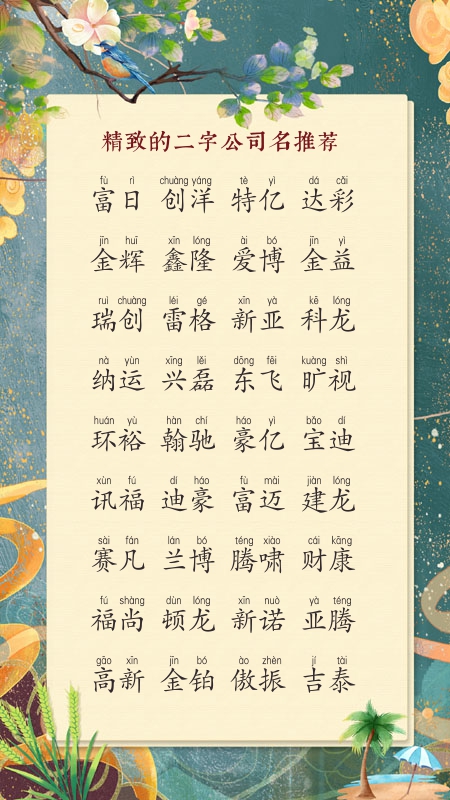 精致的二字公司名推荐
fù rì chuàng yáng tè yì dá cǎi
富日 创洋 特亿 达彩
jīn huī xīn lóng ài bó jīn yì
金辉 鑫隆 爱博 金益
ruì chuàng léi gé xīn yà kē lóng
瑞创 雷格 新亚 科龙
nà yùn xīng lěi dōng fēi kuàng shì
纳运 兴磊 东飞 旷视
huán yù hàn chí háo yì bǎo dí
环裕 翰驰 豪亿 宝迪
xùn fú dí háo fù mài jiàn lóng
讯福 迪豪 富迈 建龙
sài fán lán bó téng xiào cái kāng
赛凡 兰博 腾啸 财康
fú shàng dùn lóng xīn nuò yà téng
福尚 顿龙 新诺 亚腾
gāo xīn jīn bó ào zhèn jí tài
高新 金铂 傲振 吉泰